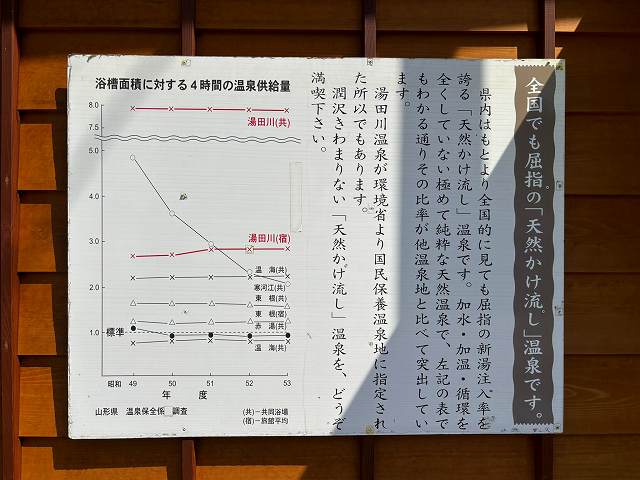 全国でも屈指の「天然かけ流し」温泉です。
県内はもとより全国的に見ても屈指の新湯注入率を
誇る「天然かけ流し」温泉です。加水・加温・循環を
全くしていない極めて純粋な天然温泉で、左記の表で
もわかる通りその比率が他温泉地と比べて突出してい
ます。
湯田川温泉が環境省より国民保養温泉地に指定され
た所以でもあります。
潤沢きわまりない「天然かけ流し」温泉を、どうぞ
満喫下さい。
浴槽面積に対する4時間の温泉供給量
8.0
湯田川(共)
5.0
4.0
3.0
湯田川(宿)
温 海(共)
寒河江(共)
2.0
東 根(共)
東 根(宿)
赤 湯(共)
標準 1.0
温 海(共)
昭和 49 50 51 52 53
年 度
山形県 温泉保全係 調査
(共)ー共同浴場
(宿)ー旅館平均